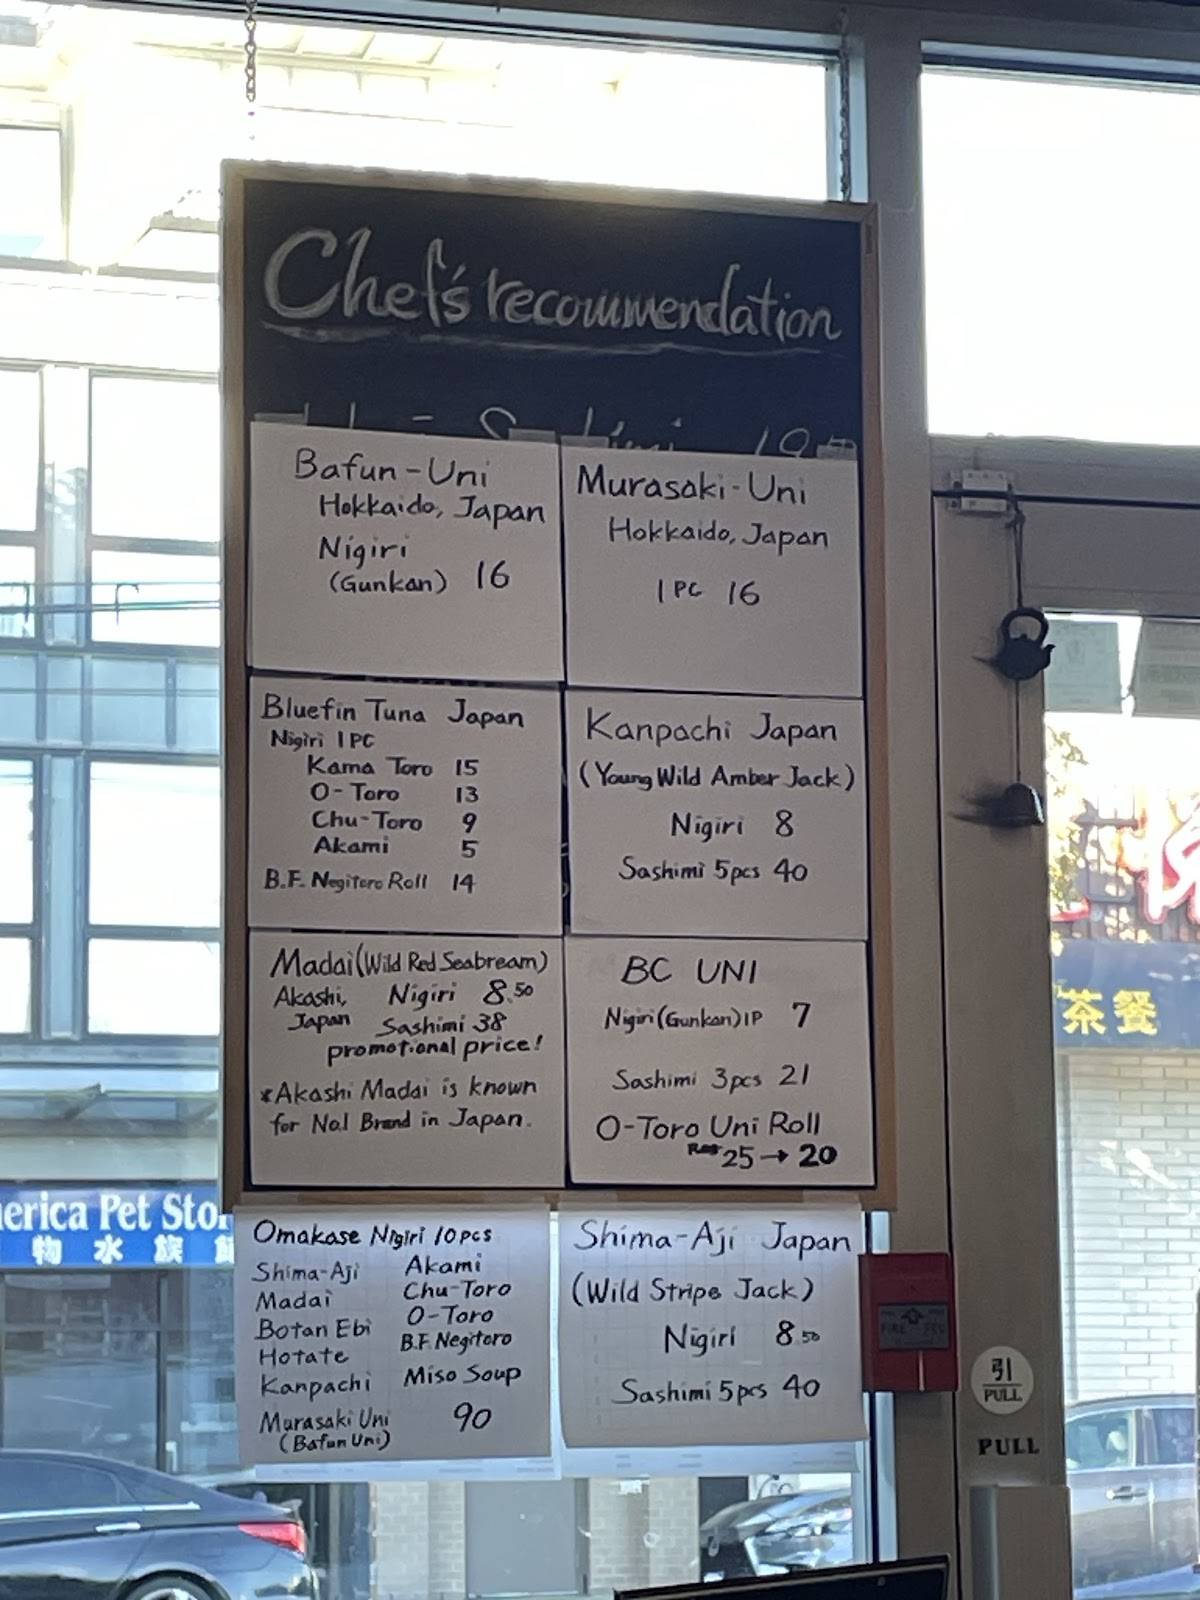 Chef's recommendation
Bafun-Uni
Hokkaido, Japan
Nigiri
(Gunkan) 16
Murasaki-Uni
Hokkaido, Japan
1 PC 16
Bluefin Tuna Japan
Nigiri 1 PC
Kama Toro 15
O-Toro 13
Chu-Toro 9
Akami 5
B.F. Negitoro Roll 14
Kanpachi Japan
(Young Wild Amber Jack)
Nigiri 8
Sashimi 5pcs 40
Madai (Wild Red Seabream)
Akashi, Nigiri 8.50
Japan Sashimi 38
promotional price!
*Akashi Madai is known
for No.1 Brand in Japan.
BC UNI
Nigiri (Gunkan) 1P 7
Sashimi 3pcs 21
O-Toro Uni Roll
Reg 25→20
Omakase Nigiri 10pcs
Shima-Aji Akami
Madai Chu-Toro
Botan Ebi O-Toro
Hotate B.F. Negitoro
Kanpachi Miso Soup
Murasaki Uni 90
(Bafun Uni)
Shima-Aji Japan
(Wild Stripe Jack)
Nigiri 8.50
Sashimi 5pcs 40
erica Pet Stor
物 水 族
茶餐
引
PULL
PULL